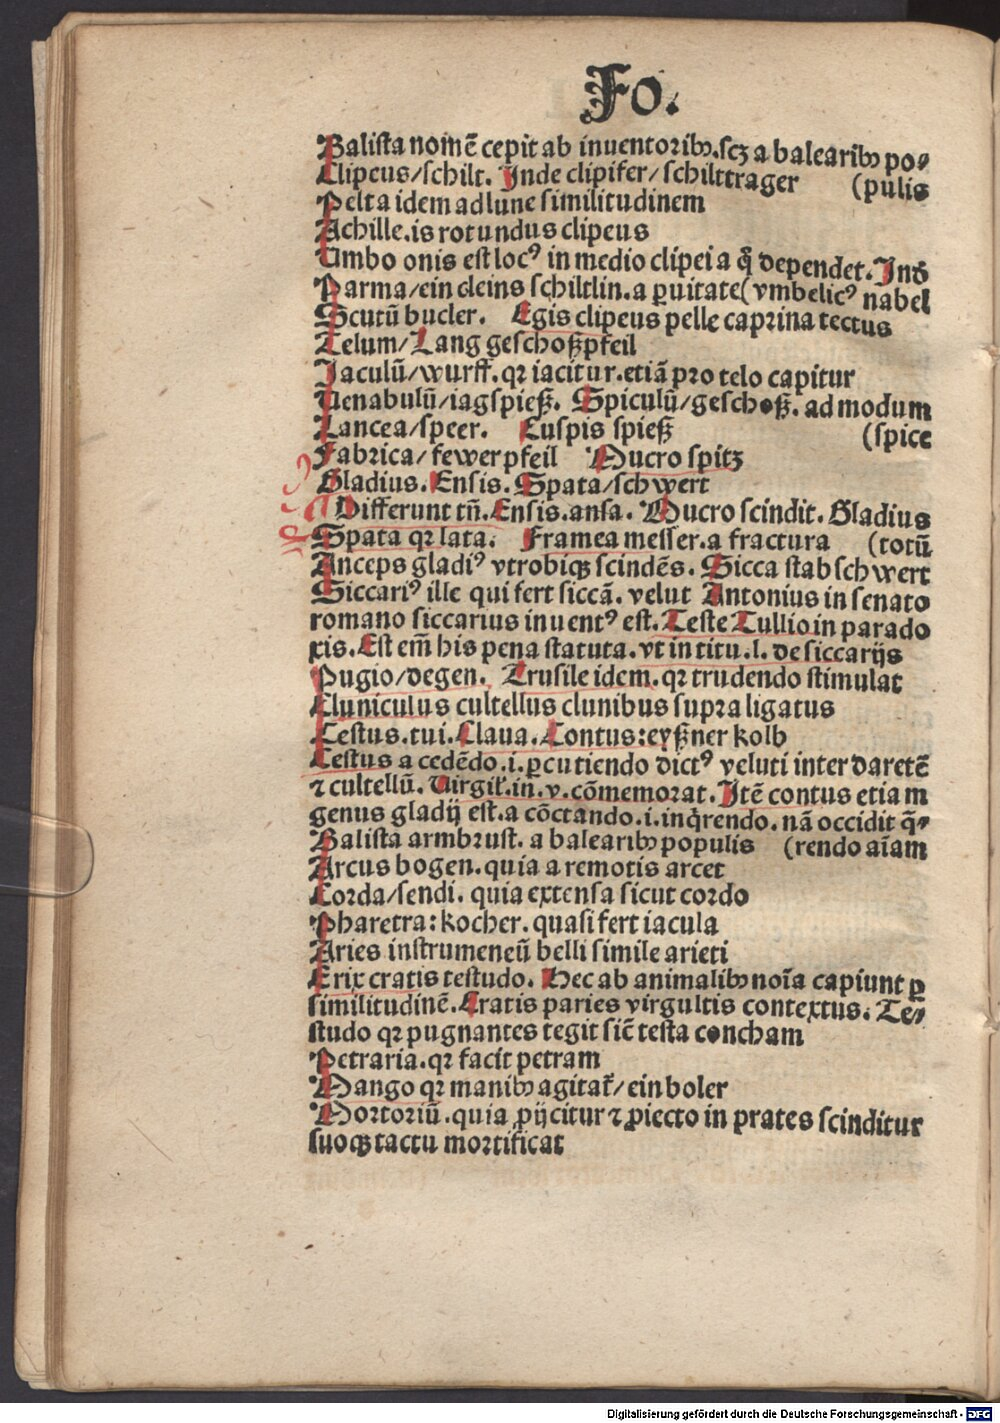 Fo.
Balista nomē cepit ab inuentoribꝰ.scꝫ a balearibꝰ po⸗
Clipeus/schilt. Inde clipifer/schilttrager (pulis
Pelta idem ad lune similitudinem
Achille.is rotundus clipeus
Umbo onis est locꝰ in medio clipei a q̄ dependet. Ind̄
Parma/ein cleins schiltlin.a ꝑuitate (vmbelicꝰ nabel
Scutū bucler. Egis clipeus pelle caprina tectus
Telum/Lang geschoßpfeil
Iaculū/wurff.qꝛ iacitur.etiā pro telo capitur
Uenabulū/iagspieß. Spiculū/geschoß. ad modum
Lancea/speer. Cuspis spieß (spice
Fabrica/fewerpfeil Mucro spitz
Gladius. Ensis. Spata/schwert
Differunt tn̄. Ensis.ansa. Mucro scindit. Gladius
Spata qꝛ lata. Framea messer.a fractura (totū
Anceps gladiꝰ vtrobiqꝫ scindēs. Sicca stabschwert
Siccariꝰ ille qui fert siccā. velut Antonius in senato
romano siccarius inuentꝰ est. Teste Tullio in parado
xis. Est em̄ his pena statuta. vt in titu.l. de siccarijs
Pugio/degen. Trusile idem.qꝛ trudendo stimulat
Cluniculus cultellus clunibus supra ligatus
Cestus.tui. Claua. Contus:eyßner kolb
Cestus a cedēdo.i.ꝑcutiendo dictꝰ veluti inter daretē
⁊ cultellū. Uirgiƚ.in.v.cōmemorat. Itē contus etiam
genus gladij est.a cōctando.i.inq̄rendo.nā occidit q̄⸗
Balista armbrust. a balearibꝰ populis (rendo aīam
Arcus bogen.quia a remotis arcet
Corda/sendi. quia extensa sicut cordo
Pharetra:kocher.quasi fert iacula
Aries instrumeneū belli simile arieti
Erix cratis testudo. Hec ab animalibꝰ noīa capiunt ꝑ
similitudinē. Cratis paries virgultis contextus. Te⸗
studo qꝛ pugnantes tegit sic̄ testa concham
Petraria.qꝛ facit petram
Mango qꝛ manibꝰ agitat̄/ein boler
Mortoriū.quia ꝓijcitur ⁊ ꝓiecto in prates scinditur
suoqꝫ tactu mortificat
Digitalisierung gefördert durch die Deutsche Forschungsgemeinschaft - DFG